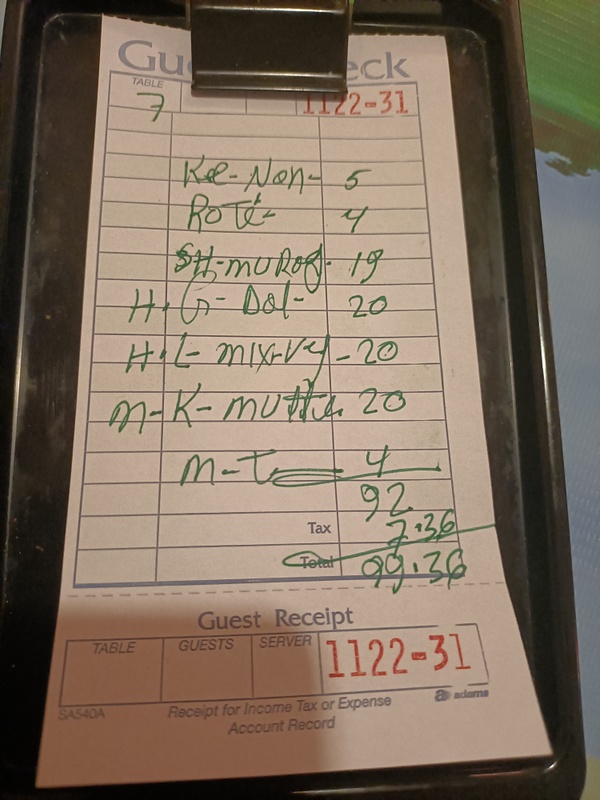 Gu eck
TABLE
7 1122-31
Ke-Non- 5
Roté- 4
SH-muRog- 19
H. G- Dal- 20
H. L- mix-vy - 20
m- K- mutte 20
m-T 4
92
Tax 7.36
Total 99.36
Guest Receipt
TABLE GUESTS SERVER 1122-31
adams
SA540A Receipt for Income Tax or Expense
Account Record